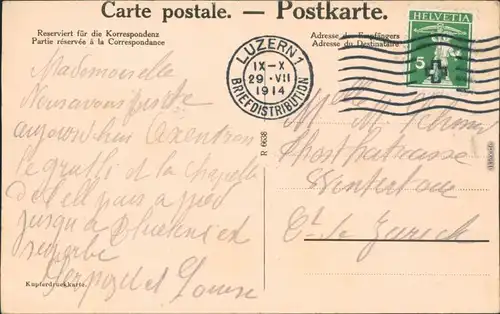 Carte postale. — Postkarte.
Reserviert für die Korrespondenz
Partie réservée à la Correspondance
Adresse des Empfängers
Adresse du Destinataire
LUZERN 1
IX-X
29 · VII
1914
BRIEFDISTRIBUTION
HELVETIA
5
Mademoiselle
Nous avons
aujourd'hui Axenstrasse
le grutli et la chapelle
de Tell puis à pied
jusqu'à Fluelen
superbe
et Louise
Melle M.
Winterthur
Ct. de Zurich
R 6638
Kupferdruckkarte.